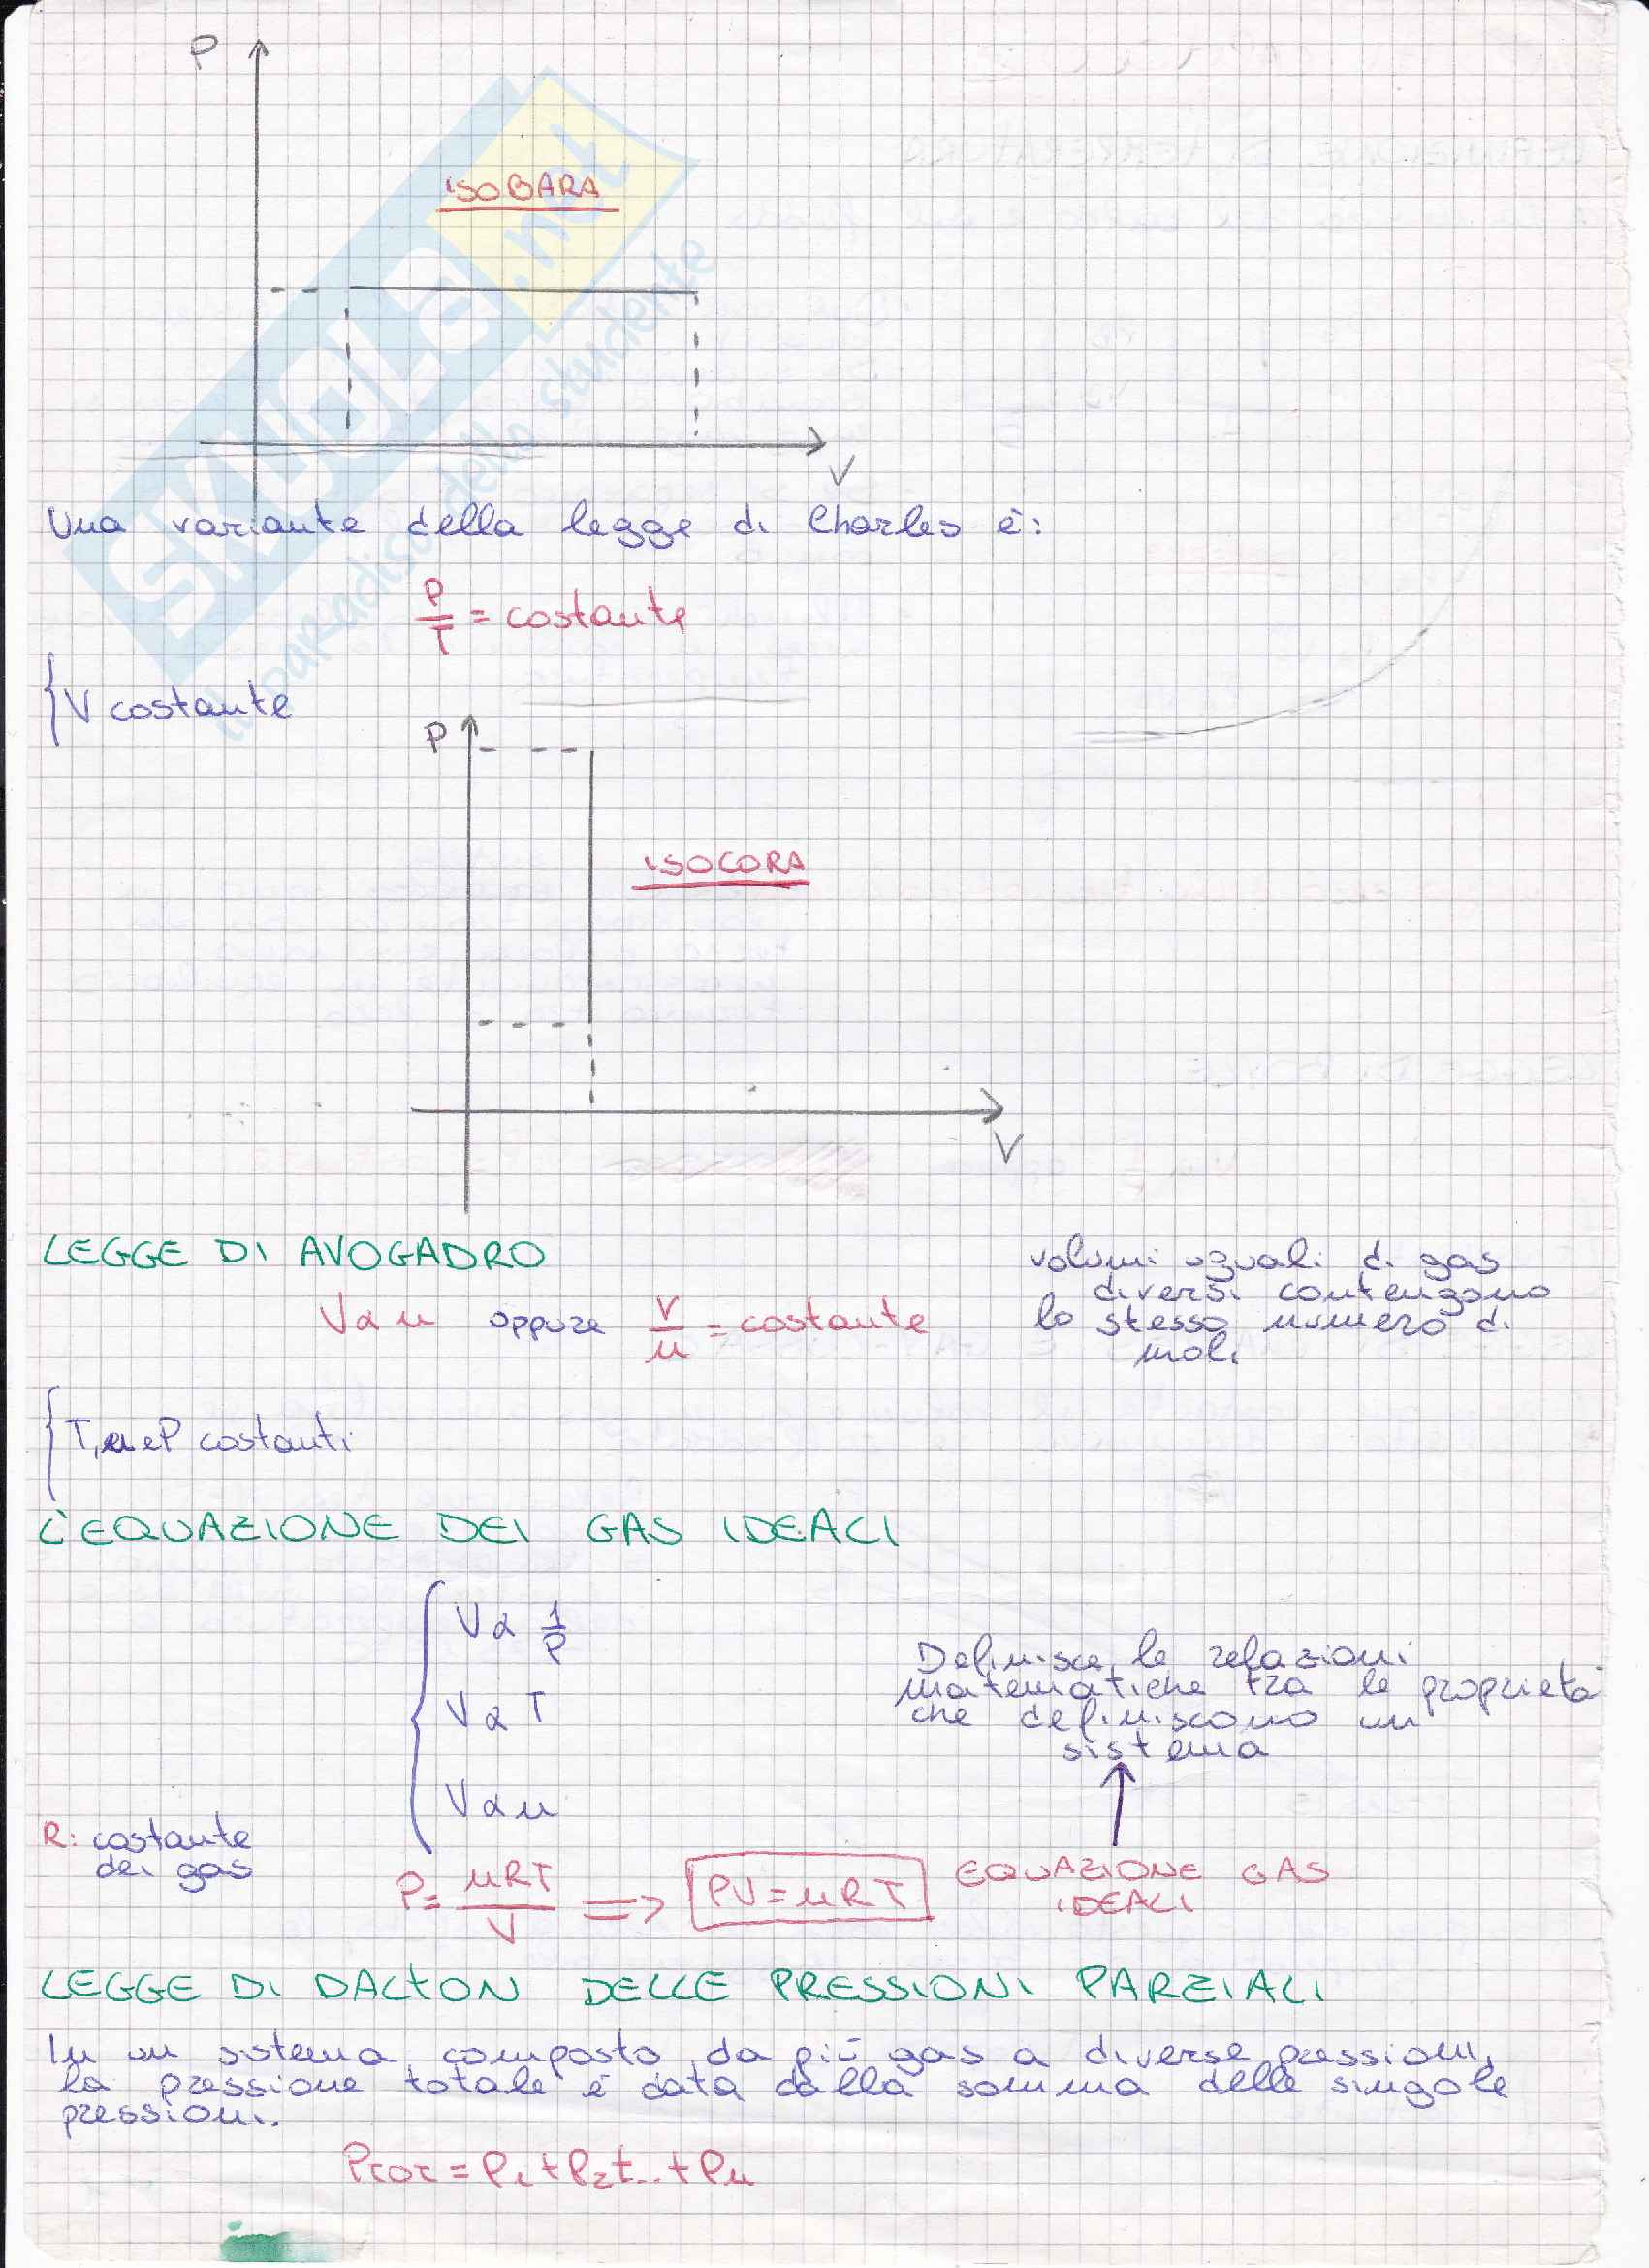 P
ISOBARA
V
Una variante della legge di Charles è:
P/T = costante
{V costante
P
ISOCORA
V
LEGGE DI AVOGADRO
V α n oppure V/n = costante
volumi uguali di gas
diversi contengono
lo stesso numero di
moli
{T, e P costanti
L'EQUAZIONE DEI GAS IDEALI
V α 1/P
V α T
V α n
Definisce le relazioni
matematiche tra le proprietà
che definiscono un
sistema
R: costante
dei gas
P = nRT/V => PV = nRT
EQUAZIONE GAS
IDEALI
LEGGE DI DALTON DELLE PRESSIONI PARZIALI
In un sistema composto da più gas a diverse pressioni,
la pressione totale è data dalla somma delle singole
pressioni.
PTOT = P1 + P2 + ... + Pn
SKUOLA.net
il paradiso dello studente